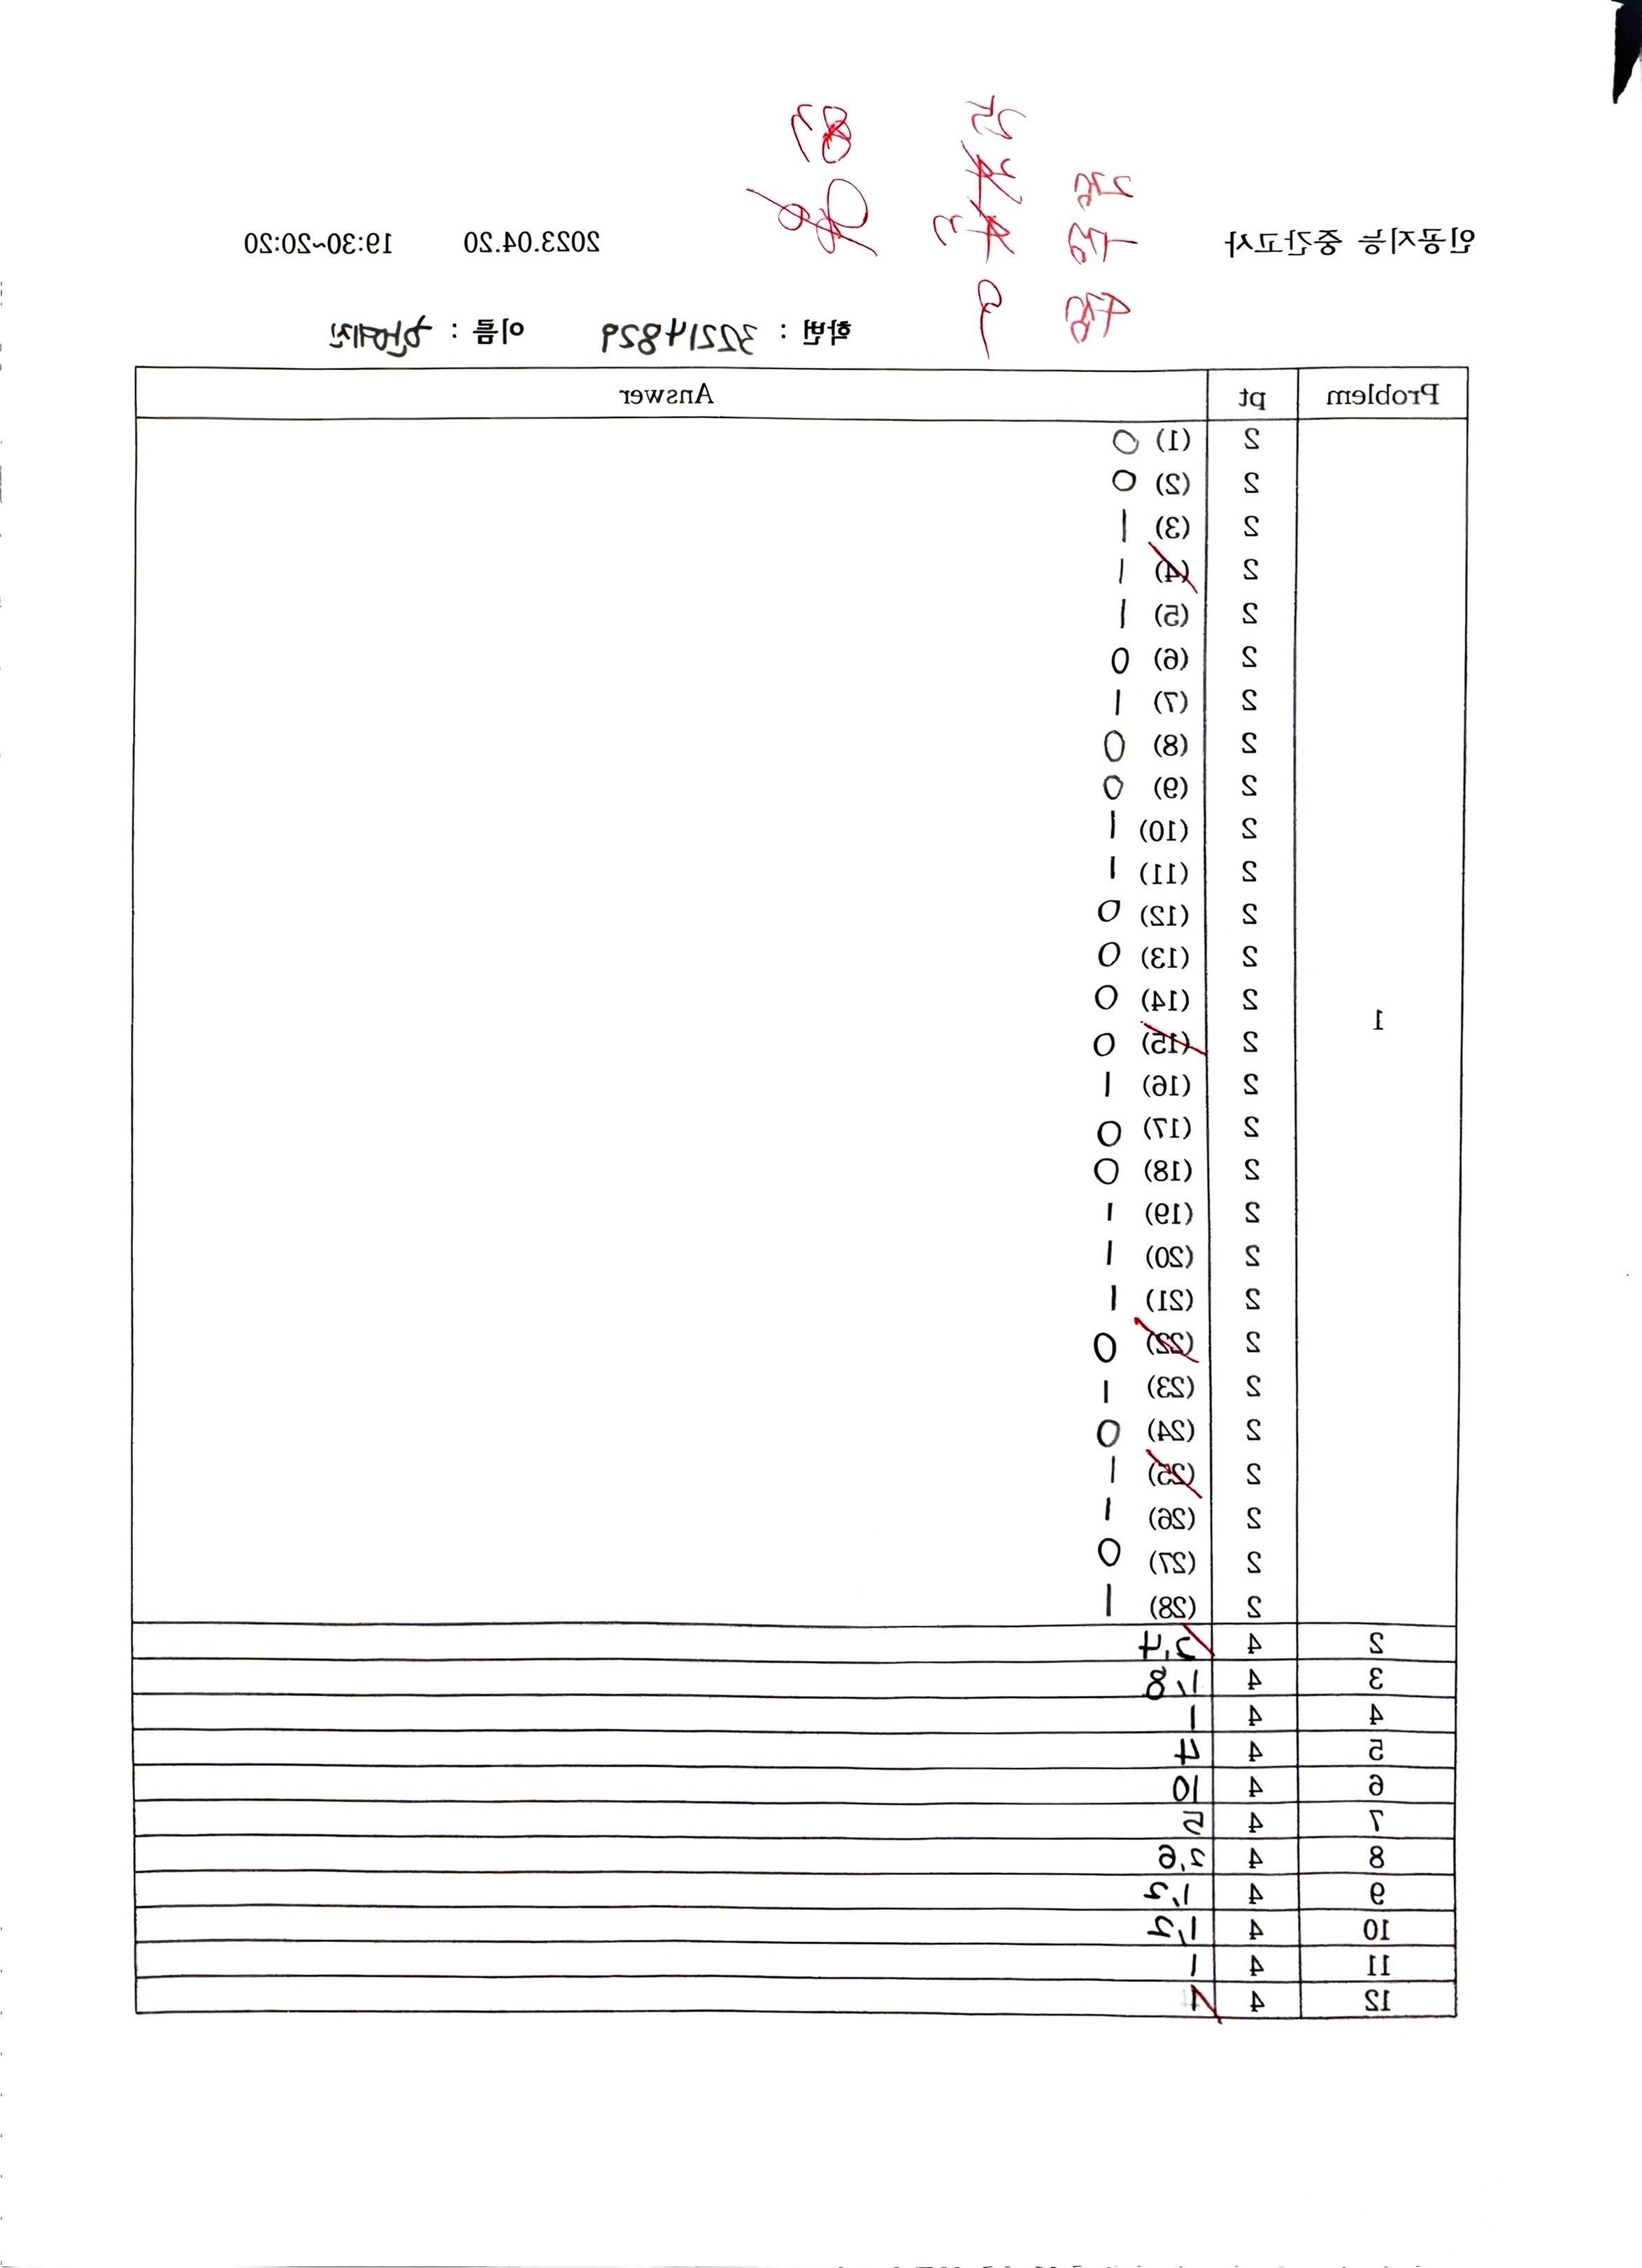 인공지능 중간고사 2023.04.20 19:30~20:20
학번 : 32214829 이름 : 한예진
Problem pt Answer
1
2 (1) 0
2 (2) 0
2 (3) 1
2 (4) 1
2 (5) 1
2 (6) 0
2 (7) 1
2 (8) 0
2 (9) 0
2 (10) 1
2 (11) 1
2 (12) 0
2 (13) 0
2 (14) 0
2 (15) 0
2 (16) 1
2 (17) 0
2 (18) 0
2 (19) 1
2 (20) 1
2 (21) 1
2 (22) 0
2 (23) 1
2 (24) 0
2 (25) 1
2 (26) 1
2 (27) 0
2 (28) 1
2 4 2,4
3 4 1,8
4 4 1
5 4 4
6 4 10
7 4 5
8 4 2,6
9 4 1,2
10 4 1,2
11 4 1
12 4 1